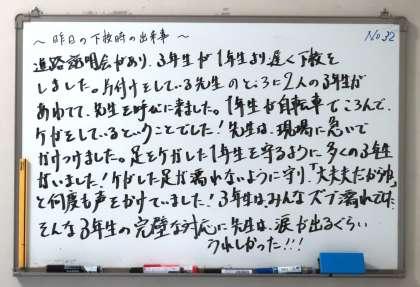 ～昨日の下校時の出来事～
No32
進路説明会があり、3年生が1年生より遅く下校を
しました。片付けをしている先生のところに2人の3年生が
あわてて、先生を呼びに来ました。1年生が自転車でころんで、
ケガをしているということでした！先生は、現場に急いで
かけつけました。足をケガした1年生を守るように多くの3年生
がいました！ケガした足が濡れないように守り、「大丈夫だからね」
と何度も声をかけていました！3年生はみんなズブ濡れでした
そんな3年生の完璧な対応に先生は、涙が出るぐらい
うれしかった!!!